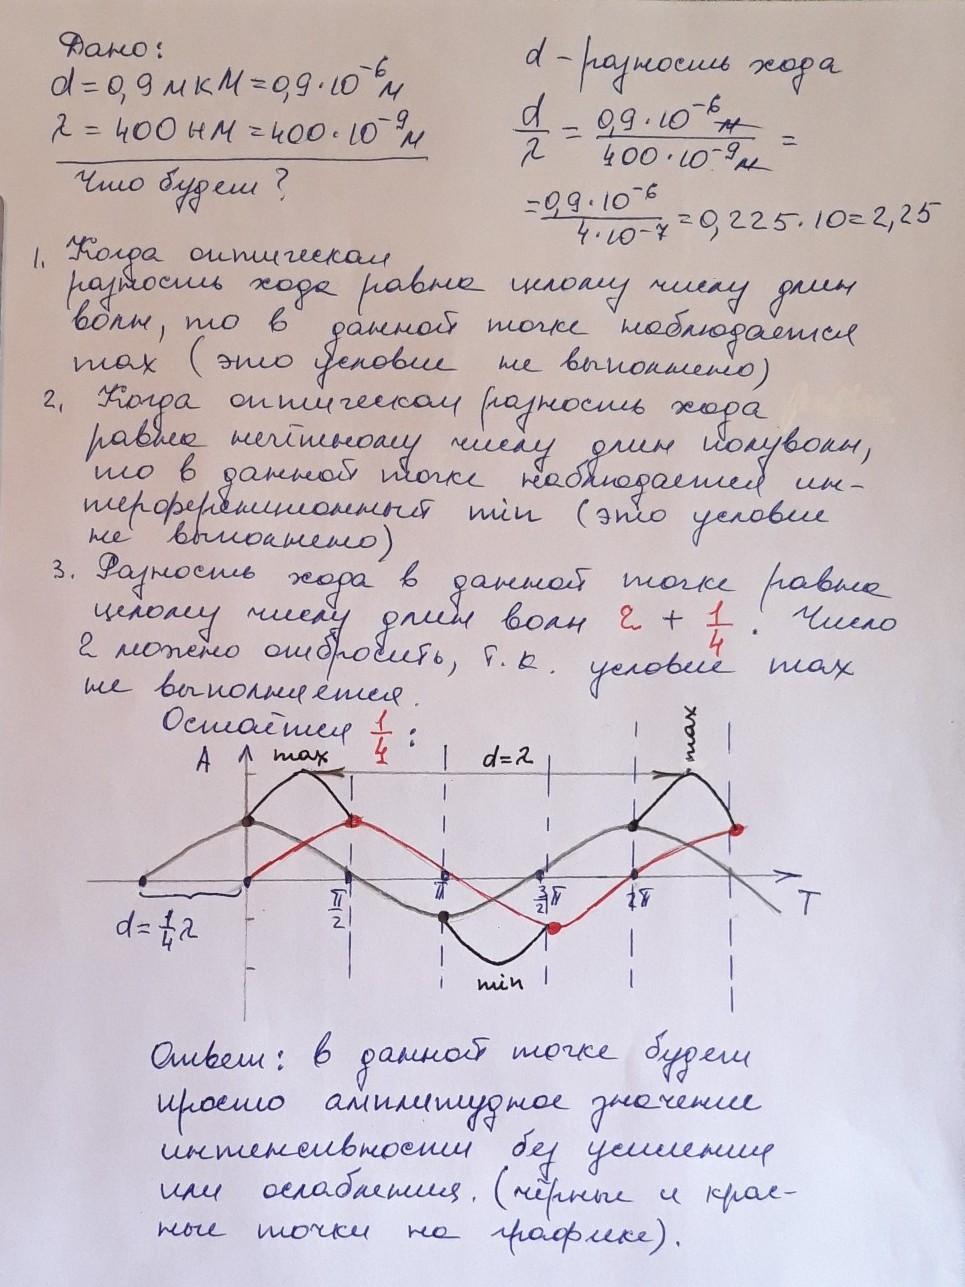 Дано:
d = 0,9 мкм = 0,9·10⁻⁶м
λ = 400 нм = 400·10⁻⁹м
Что будет?
d – разность хода
d/λ = 0,9·10⁻⁶м / 400·10⁻⁹м =
= 0,9·10⁻⁶ / 4·10⁻⁷ = 0,225·10 = 2,25
1. Когда оптическая
разность хода равна целому числу длин
волн, то в данной точке наблюдается
max (это условие не выполнено)
2. Когда оптическая разность хода
равна нечётному числу длин полуволн,
то в данной точке наблюдается ин-
терференционный min (это условие
не выполнено)
3. Разность хода в данной точке равна
целому числу длин волн 2 + 1/4. Число
2 можно отбросить, т.к. условие max
не выполняется.
Остаётся 1/4:
A max d=λ max
d = 1/4 λ π/2 π 3/2 π 2π T
min
Ответ: в данной точке будет
просто амплитудное значение
интенсивности без усиления
или ослабления. (чёрные и крас-
ные точки на графике).